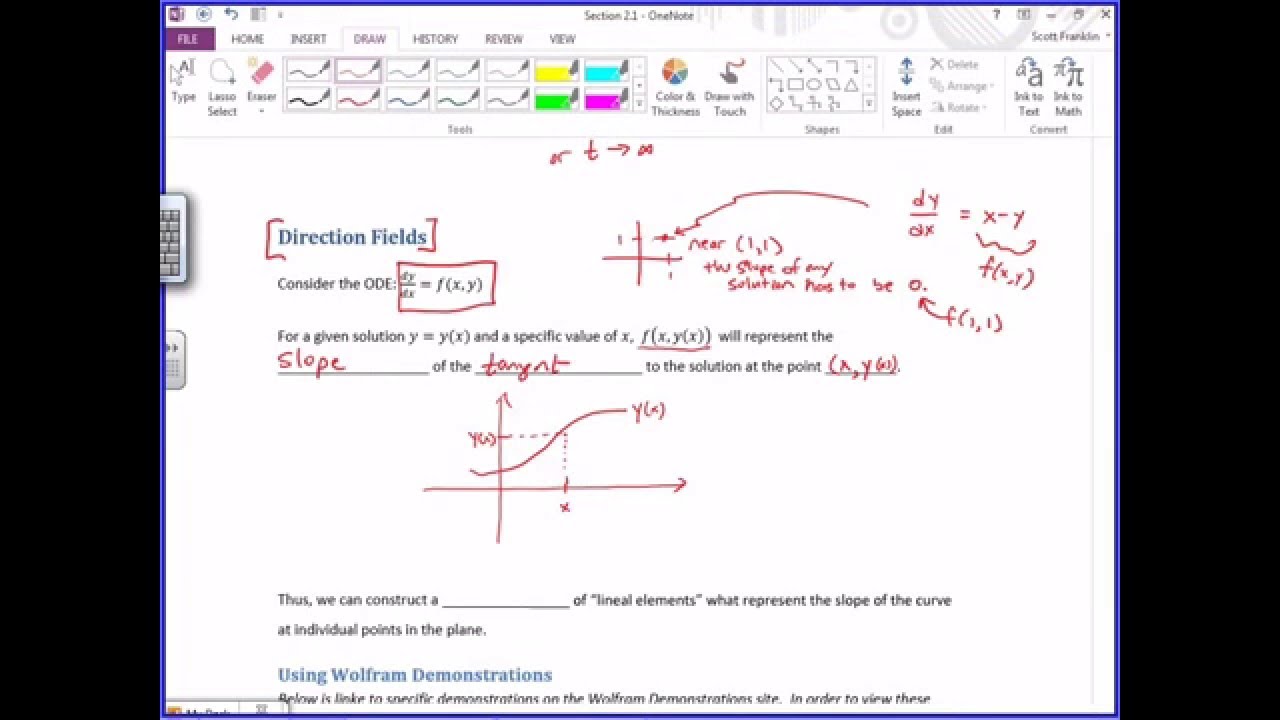 Section 2.1 - OneNote
?
Scott Franklin
FILE HOME INSERT DRAW HISTORY REVIEW VIEW
Type
Lasso Select
Eraser
Color & Thickness
Draw with Touch
Insert Space
Delete
Arrange
Rotate
Ink to Text
Ink to Math
Tools
Shapes
Edit
Convert
or t → ∞
dy/dx = x-y
f(x,y)
[Direction Fields]
1
1
near (1,1)
the slope of any
solution has to be 0.
f(1,1)
Consider the ODE: dy/dx = f(x, y)
For a given solution y = y(x) and a specific value of x, f(x, y(x)) will represent the
slope of the tangent to the solution at the point (x, y(x)).
y(x)
y(x)
x
Thus, we can construct a ______________ of “lineal elements” what represent the slope of the curve
at individual points in the plane.
Using Wolfram Demonstrations
Below is linke to specific demonstrations on the Wolfram Demonstrations site. In order to view these